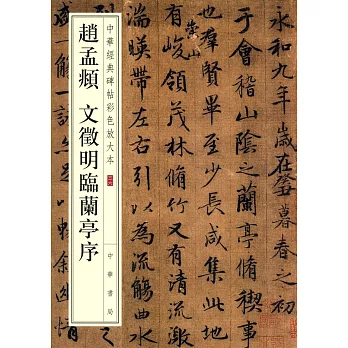 和九年歲在癸暮春之初
于會稽山陰之蘭亭脩禊事
也羣賢畢至少長咸集
崇山
領茂林脩竹又有清流
湍暎帶左右引以為流觴曲水
中華經典碑帖彩色放大本
趙孟頫 文徵明臨蘭亭序
中華書局